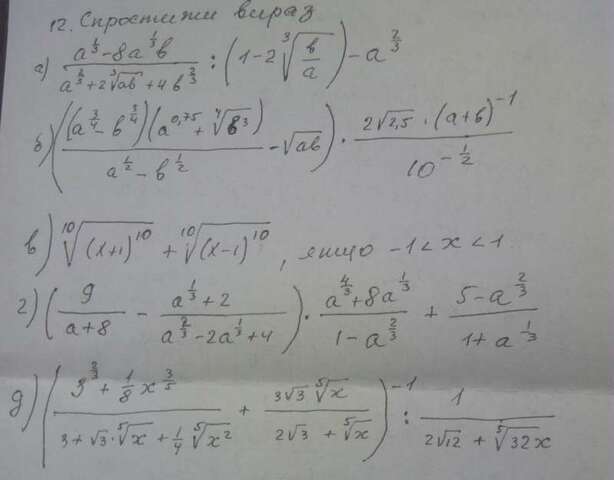 12. Спростити вираз
а) (a^{1/3} - 8a^{1/3}b)/(a^{2/3} + 2∛(ab) + 4b^{2/3}) : (1 - 2∛(b/a)) - a^{2/3}
б) (((a^{3/4} - b^{3/4})(a^{0,75} + ∜(b^3)))/(a^{1/2} - b^{1/2}) - √(ab)) · (2√2,5 · (a+b)^{-1})/(10^{-1/2})
в) ¹⁰√((x+1)^{10}) + ¹⁰√((x-1)^{10}), якщо -1 < x < 1
г) (9/(a+8) - (a^{1/3} + 2)/(a^{2/3} - 2a^{1/3} + 4)) · (a^{4/3} + 8a^{1/3})/(1 - a^{2/3}) + (5 - a^{2/3})/(1 + a^{1/3})
д) ((3^{3/2} + 1/8 x^{3/5})/(3 + √3 · ⁵√x + 1/4 ⁵√(x^2)) + (3√3 ⁵√x)/(2√3 + ⁵√x))^{-1} : 1/(2√12 + ⁵√(32x))